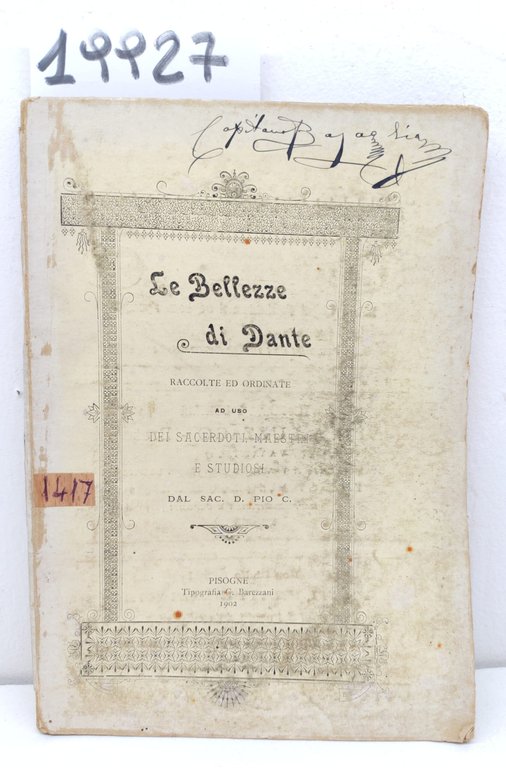 19927
Capitano
Le Bellezze
di Dante
RACCOLTE ED ORDINATE
AD USO
DEI SACERDOTI, MAESTRI
E STUDIOSI
DAL SAC. D. PIO C.
1417
PISOGNE
Tipografia G. Barezzani
1902